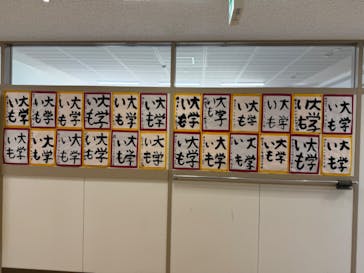 大学
いも
大学
いも
大学
いも
大学
いも
大学
いも
大学
いも
大学
いも
大学
いも
大学
いも
大学
いも
大学
いも
大学
いも
大学
いも
大学
いも
大学
いも
大学
いも
大学
いも
大学
いも
大学
いも
大学
いも
大学
いも
大学
いも
大学
いも
大学
いも